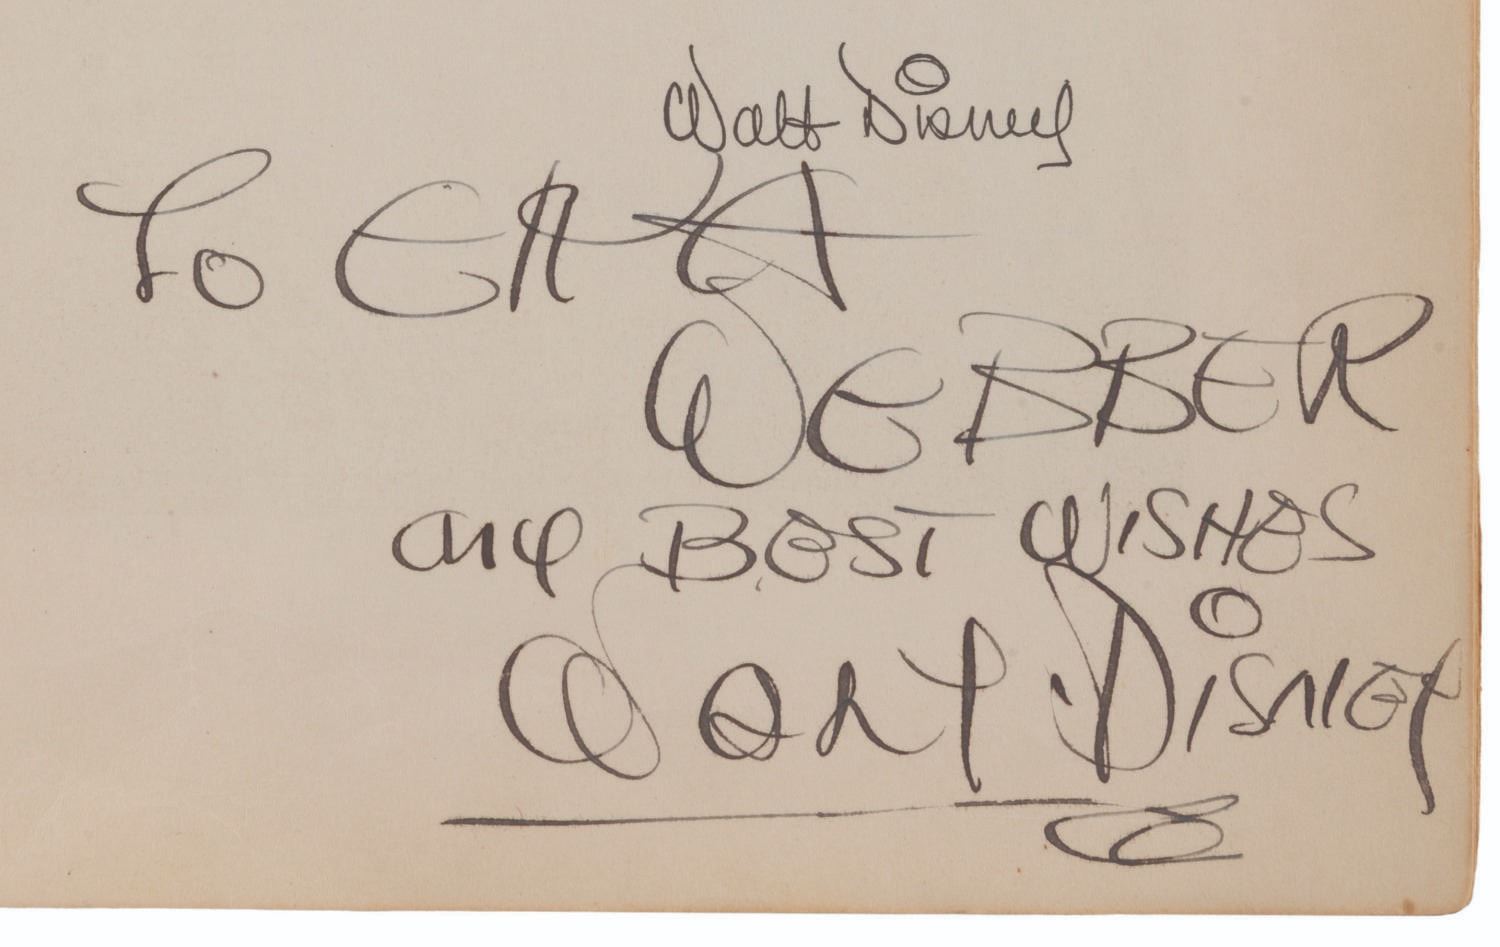 Walt Disney
To
WEBBER
and BEST WISHES
WALT DISNEY